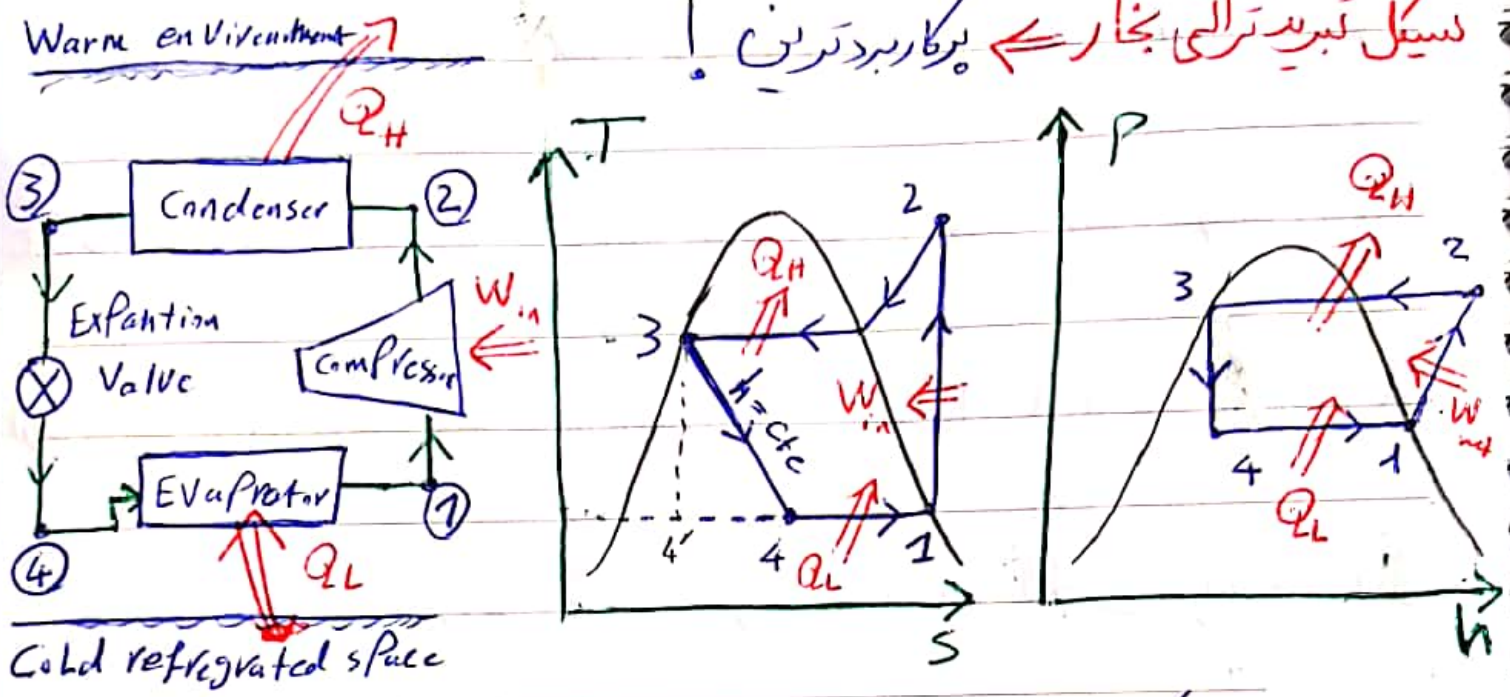 سیکل تبرید تراکمی بخار ⇐ پرکاربردترین !
Warm envirenthment
Q_H
3
Condenser
2
Expantion
Value
W_in
Compressor
Evaprator
1
4
Q_L
Cold refregrated space
T
2
Q_H
3
h=cte
W_in
4′
4
Q_L
1
S
P
Q_H
2
3
W_net
4
1
Q_L
h